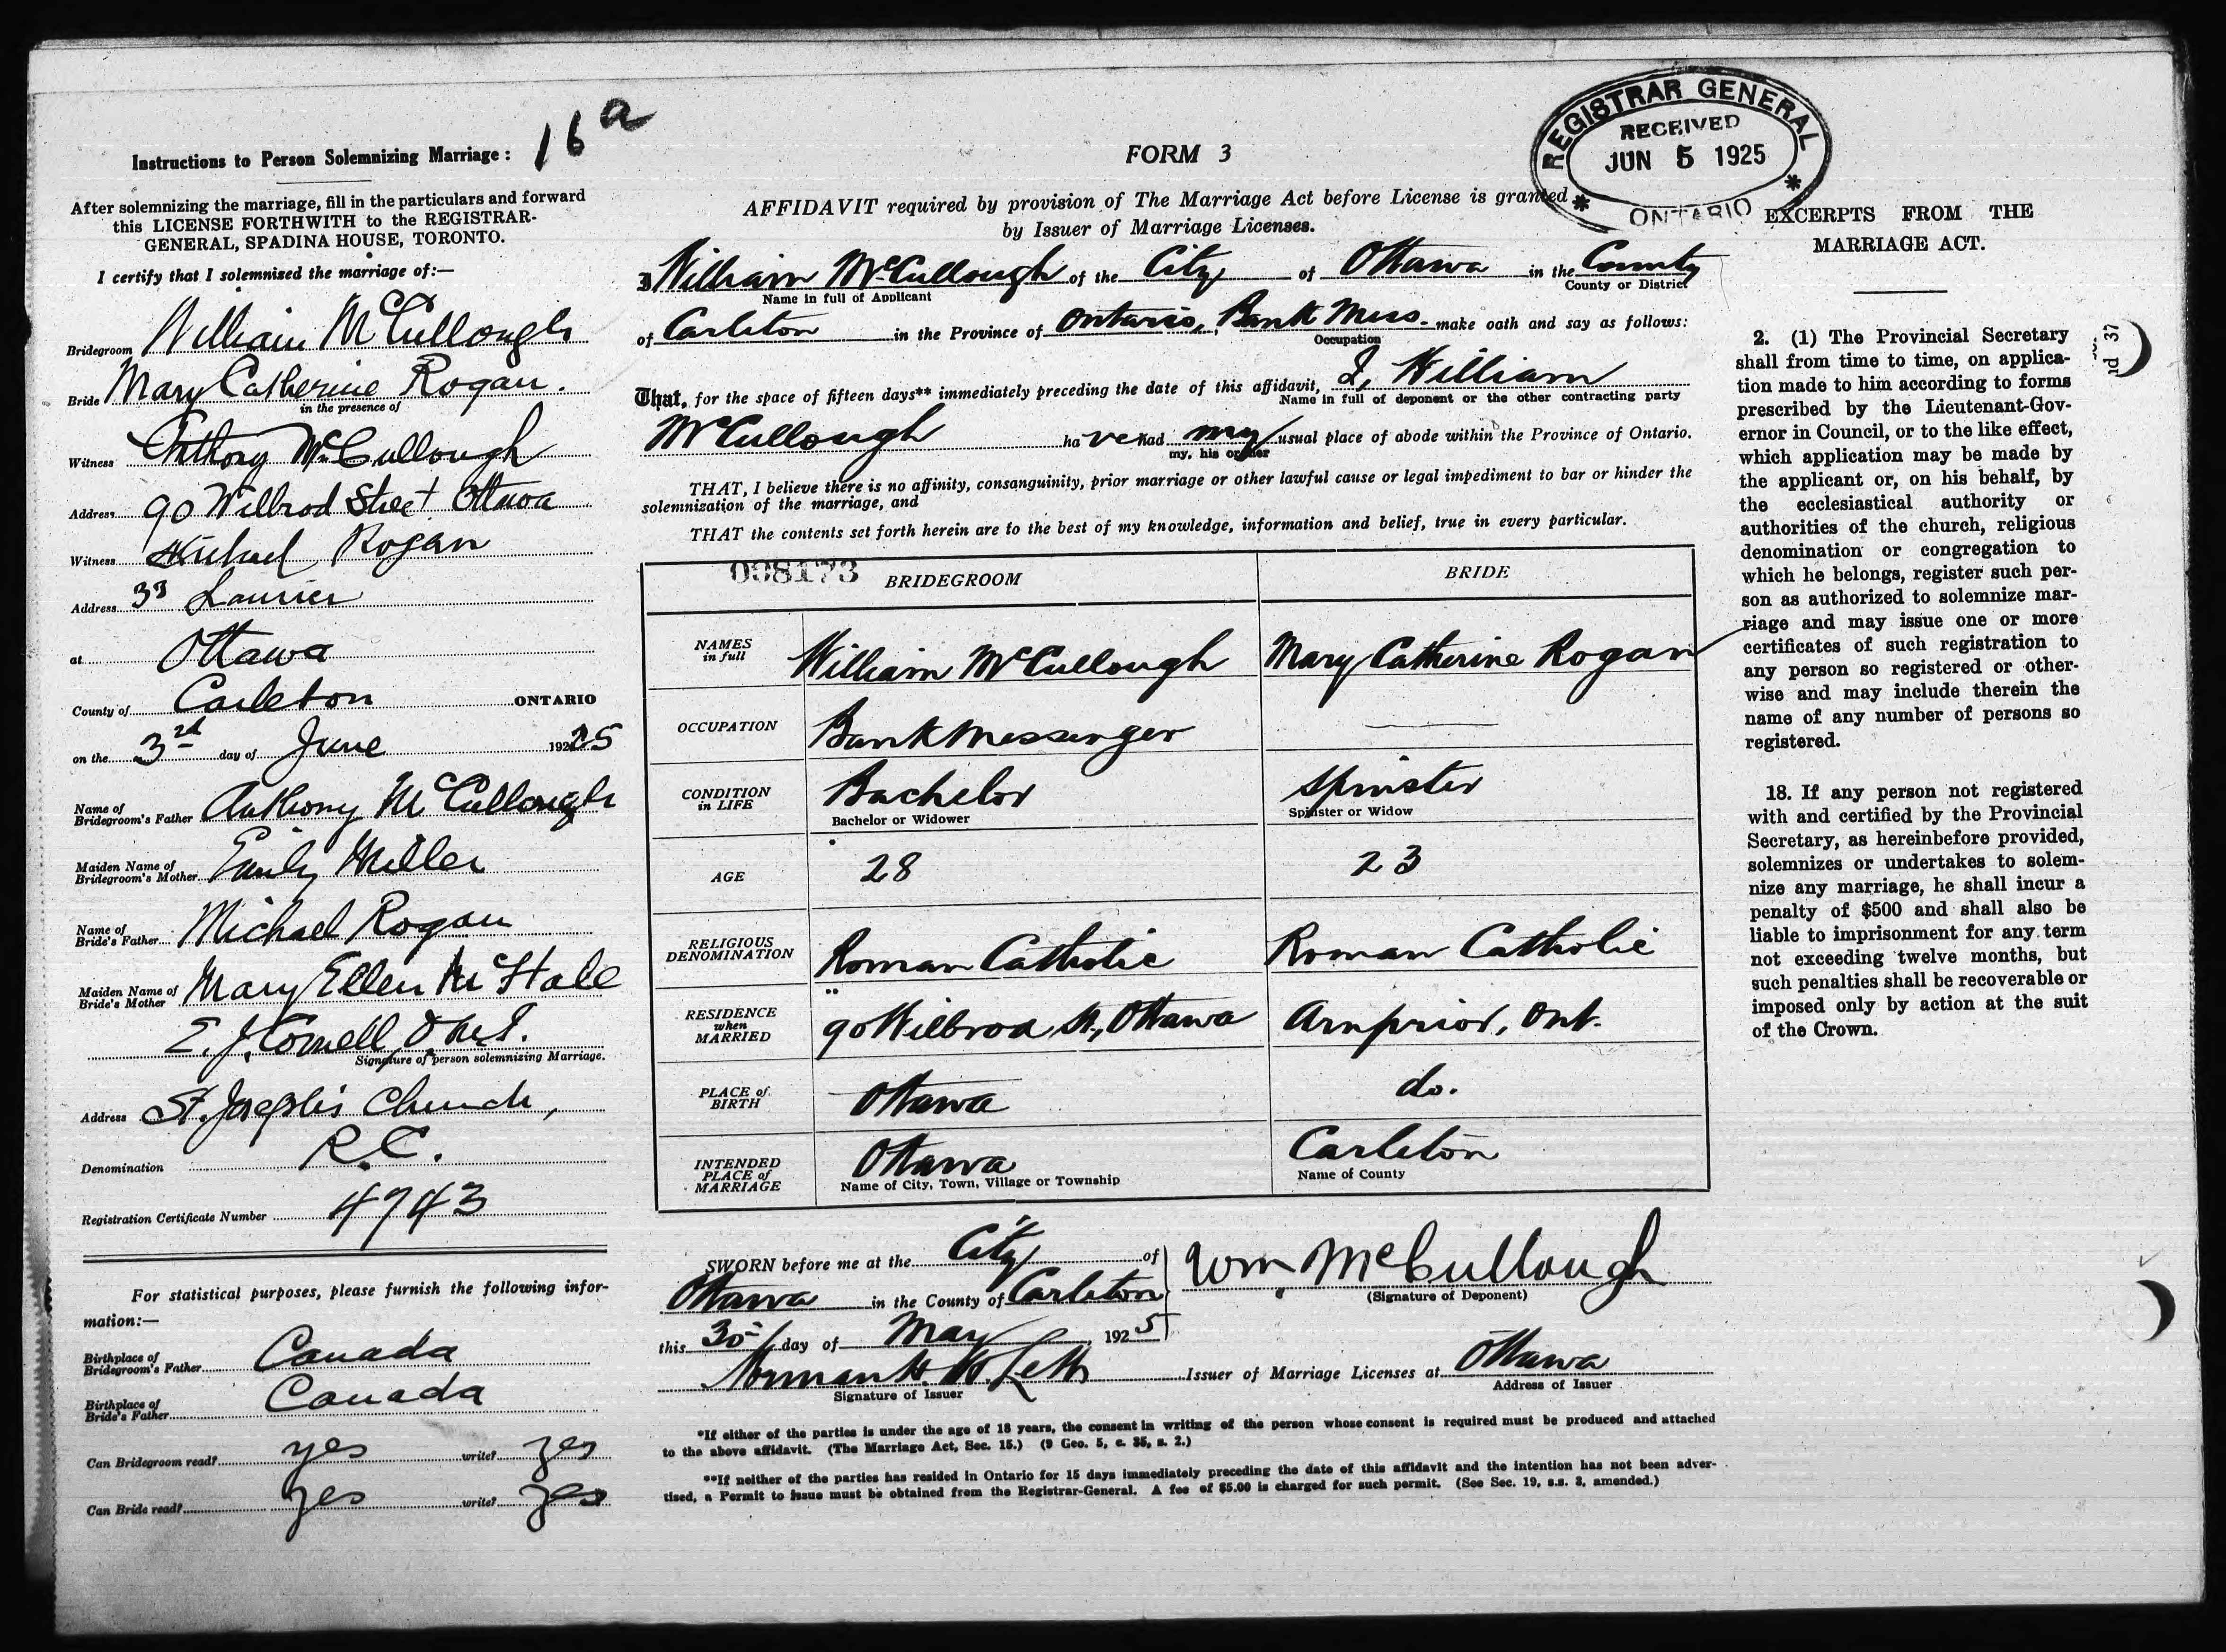 16 a
Instructions to Person Solemnizing Marriage:
After solemnizing the marriage, fill in the particulars and forward
this LICENSE FORTHWITH to the REGISTRAR-
GENERAL, SPADINA HOUSE, TORONTO.
I certify that I solemnized the marriage of:—
Bridegroom William McCullough
Bride Mary Catherine Rogan.
in the presence of
Witness Anthony McCullough
Address 90 Wilbrod Street Ottawa
Witness Michael Rogan
Address 33 Laurier
at Ottawa
County of Carleton ONTARIO
on the 3rd day of June 1925
Name of
Bridegroom's Father Anthony McCullough
Maiden Name of
Bridegroom's Mother Emily Miller
Name of
Bride's Father Michael Rogan
Maiden Name of
Bride's Mother Mary Ellen McHale
E. J. Cornell O.M.I.
Signature of person solemnizing Marriage.
Address St. Joseph's Church,
Denomination R.C.
Registration Certificate Number 4743
For statistical purposes, please furnish the following infor-
mation:—
Birthplace of
Bridegroom's Father Canada
Birthplace of
Bride's Father Canada
Can Bridegroom read? yes write? yes
Can Bride read? yes write? yes
FORM 3
REGISTRAR GENERAL
RECEIVED
JUN 5 1925
ONTARIO
AFFIDAVIT required by provision of The Marriage Act before License is granted
by Issuer of Marriage Licenses.
I William McCullough of the City of Ottawa in the County
Name in full of Applicant County or District
of Carleton in the Province of Ontario, Bank Mess. make oath and say as follows:
Occupation
That, for the space of fifteen days** immediately preceding the date of this affidavit, I, William
Name in full of deponent or the other contracting party
McCullough ha ve had my usual place of abode within the Province of Ontario.
my, his or her
THAT, I believe there is no affinity, consanguinity, prior marriage or other lawful cause or legal impediment to bar or hinder the
solemnization of the marriage, and
THAT the contents set forth herein are to the best of my knowledge, information and belief, true in every particular.
008173 BRIDEGROOM BRIDE
NAMES
in full William McCullough Mary Catherine Rogan
OCCUPATION Bank Messenger —
CONDITION
in LIFE Bachelor Spinster
Bachelor or Widower Spinster or Widow
AGE 28 23
RELIGIOUS
DENOMINATION Roman Catholic Roman Catholic
RESIDENCE
when
MARRIED 90 Wilbrod St., Ottawa Arnprior, Ont.
PLACE of
BIRTH Ottawa do.
INTENDED
PLACE of
MARRIAGE Ottawa Carleton
Name of City, Town, Village or Township Name of County
SWORN before me at the City of
Ottawa in the County of Carleton
this 30 day of May 1925
Wm McCullough
(Signature of Deponent)
Norman H. Issuer of Marriage Licenses at Ottawa
Signature of Issuer Address of Issuer
*If either of the parties is under the age of 18 years, the consent in writing of the person whose consent is required must be produced and attached
to the above affidavit. (The Marriage Act, Sec. 15.) (9 Geo. 5, c. 35, s. 2.)
**If neither of the parties has resided in Ontario for 15 days immediately preceding the date of this affidavit and the intention has not been adver-
tised, a Permit to issue must be obtained from the Registrar-General. A fee of $5.00 is charged for such permit. (See Sec. 19, s.s. 3, amended.)
EXCERPTS FROM THE
MARRIAGE ACT.
2. (1) The Provincial Secretary
shall from time to time, on applica-
tion made to him according to forms
prescribed by the Lieutenant-Gov-
ernor in Council, or to the like effect,
which application may be made by
the applicant or, on his behalf, by
the ecclesiastical authority or
authorities of the church, religious
denomination or congregation to
which he belongs, register such per-
son as authorized to solemnize mar-
riage and may issue one or more
certificates of such registration to
any person so registered or other-
wise and may include therein the
name of any number of persons so
registered.
18. If any person not registered
with and certified by the Provincial
Secretary, as hereinbefore provided,
solemnizes or undertakes to solem-
nize any marriage, he shall incur a
penalty of $500 and shall also be
liable to imprisonment for any term
not exceeding twelve months, but
such penalties shall be recoverable or
imposed only by action at the suit
of the Crown.